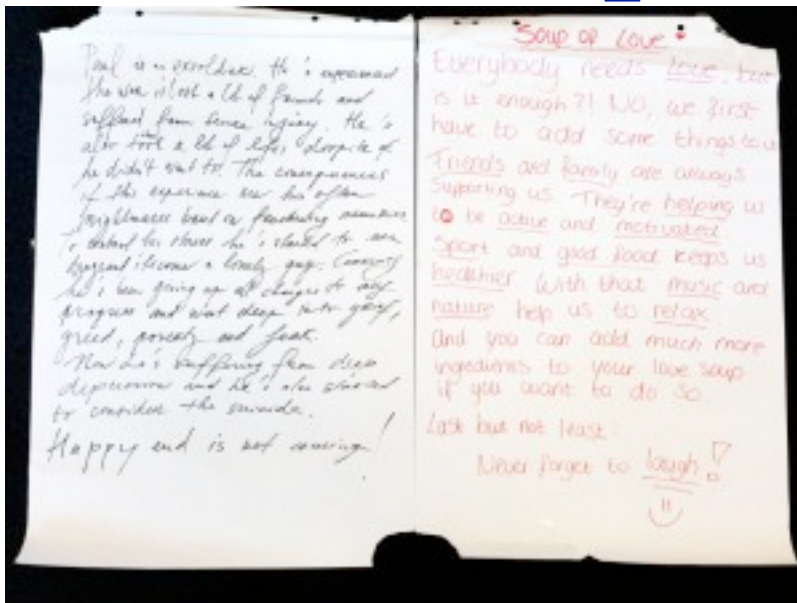 Paul is an exsoldier. He's experienced
the war lost a lot of friends and
suffered from severe injury. He's
also took a lot of lifes despite of
he didn't want to. The consequences
of this experience are his often
nightmares
to his he's started to
become a lonely guy.
he's been giving up all changes to any
progress and went deep into grief,
greed, poverty and
Now he's suffering from deep
depression and he's also started
to consider the suicide.
Happy end is not coming!
Soup of Love
Everybody needs Love, but
is it enough?! NO, we first
have to add some things to it
Friends and family are always
supporting us. They're helping us
to be active and motivated
Sport and good food keeps us
healthier. With that music and
nature help us to relax
And you can add much more
ingredients to your love soup
if you want to do so
Last but not least:
Never forget to laugh!